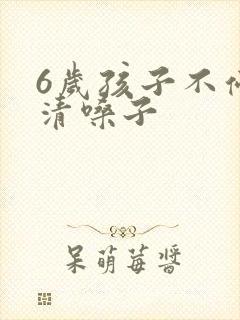 6歲孩子不
清嗓子
呆萌莓醬